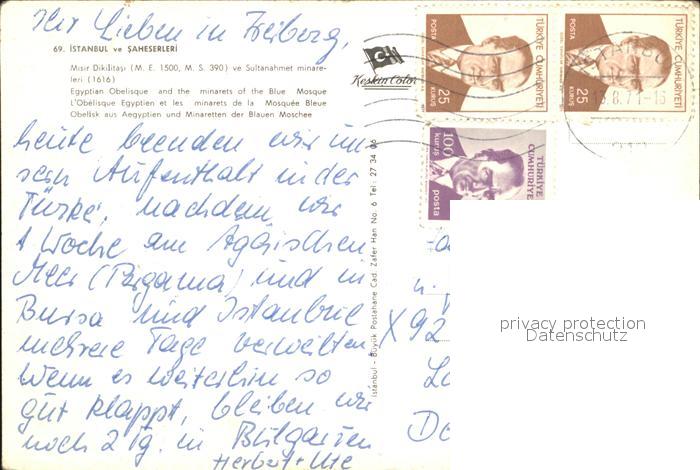 Ihr Lieben in Freiberg,
69. İSTANBUL ve ŞAHESERLERİ
Mısır Dikilitaşı (M. E. 1500, M. S. 390) ve Sultanahmet minare-
leri (1616)
Egyptian Obelisque and the minarets of the Blue Mosque
L'Obélisque Egyptien et les minarets de la Mosquée Bleue
Obelisk aus Aegyptien und Minaretten der Blauen Moschee
Keskin Color
heute beenden wir un-
sern Aufenthalt in der
Türkei, nachdem wir
1 Woche am Ägäischen
Meer (Pergama) und in
Bursa und Istanbul
mehrere Tage verweilten.
Wenn es weiterhin so
gut klappt, bleiben wir
noch 2 Tg. in Bulgarien
Herbert + Ute
İstanbul - Büyük Postahane Cad. Zafer Han No. 6 Tel: 27 34 06
TÜRKİYE CUMHURİYETİ
POSTA
25
KURUŞ
TÜRKİYE CUMHURİYETİ
POSTA
25
KURUŞ
8.71-15
TÜRKİYE
CUMHURİYETİ
100
kuruş
posta
X 92
privacy protection
Datenschutz